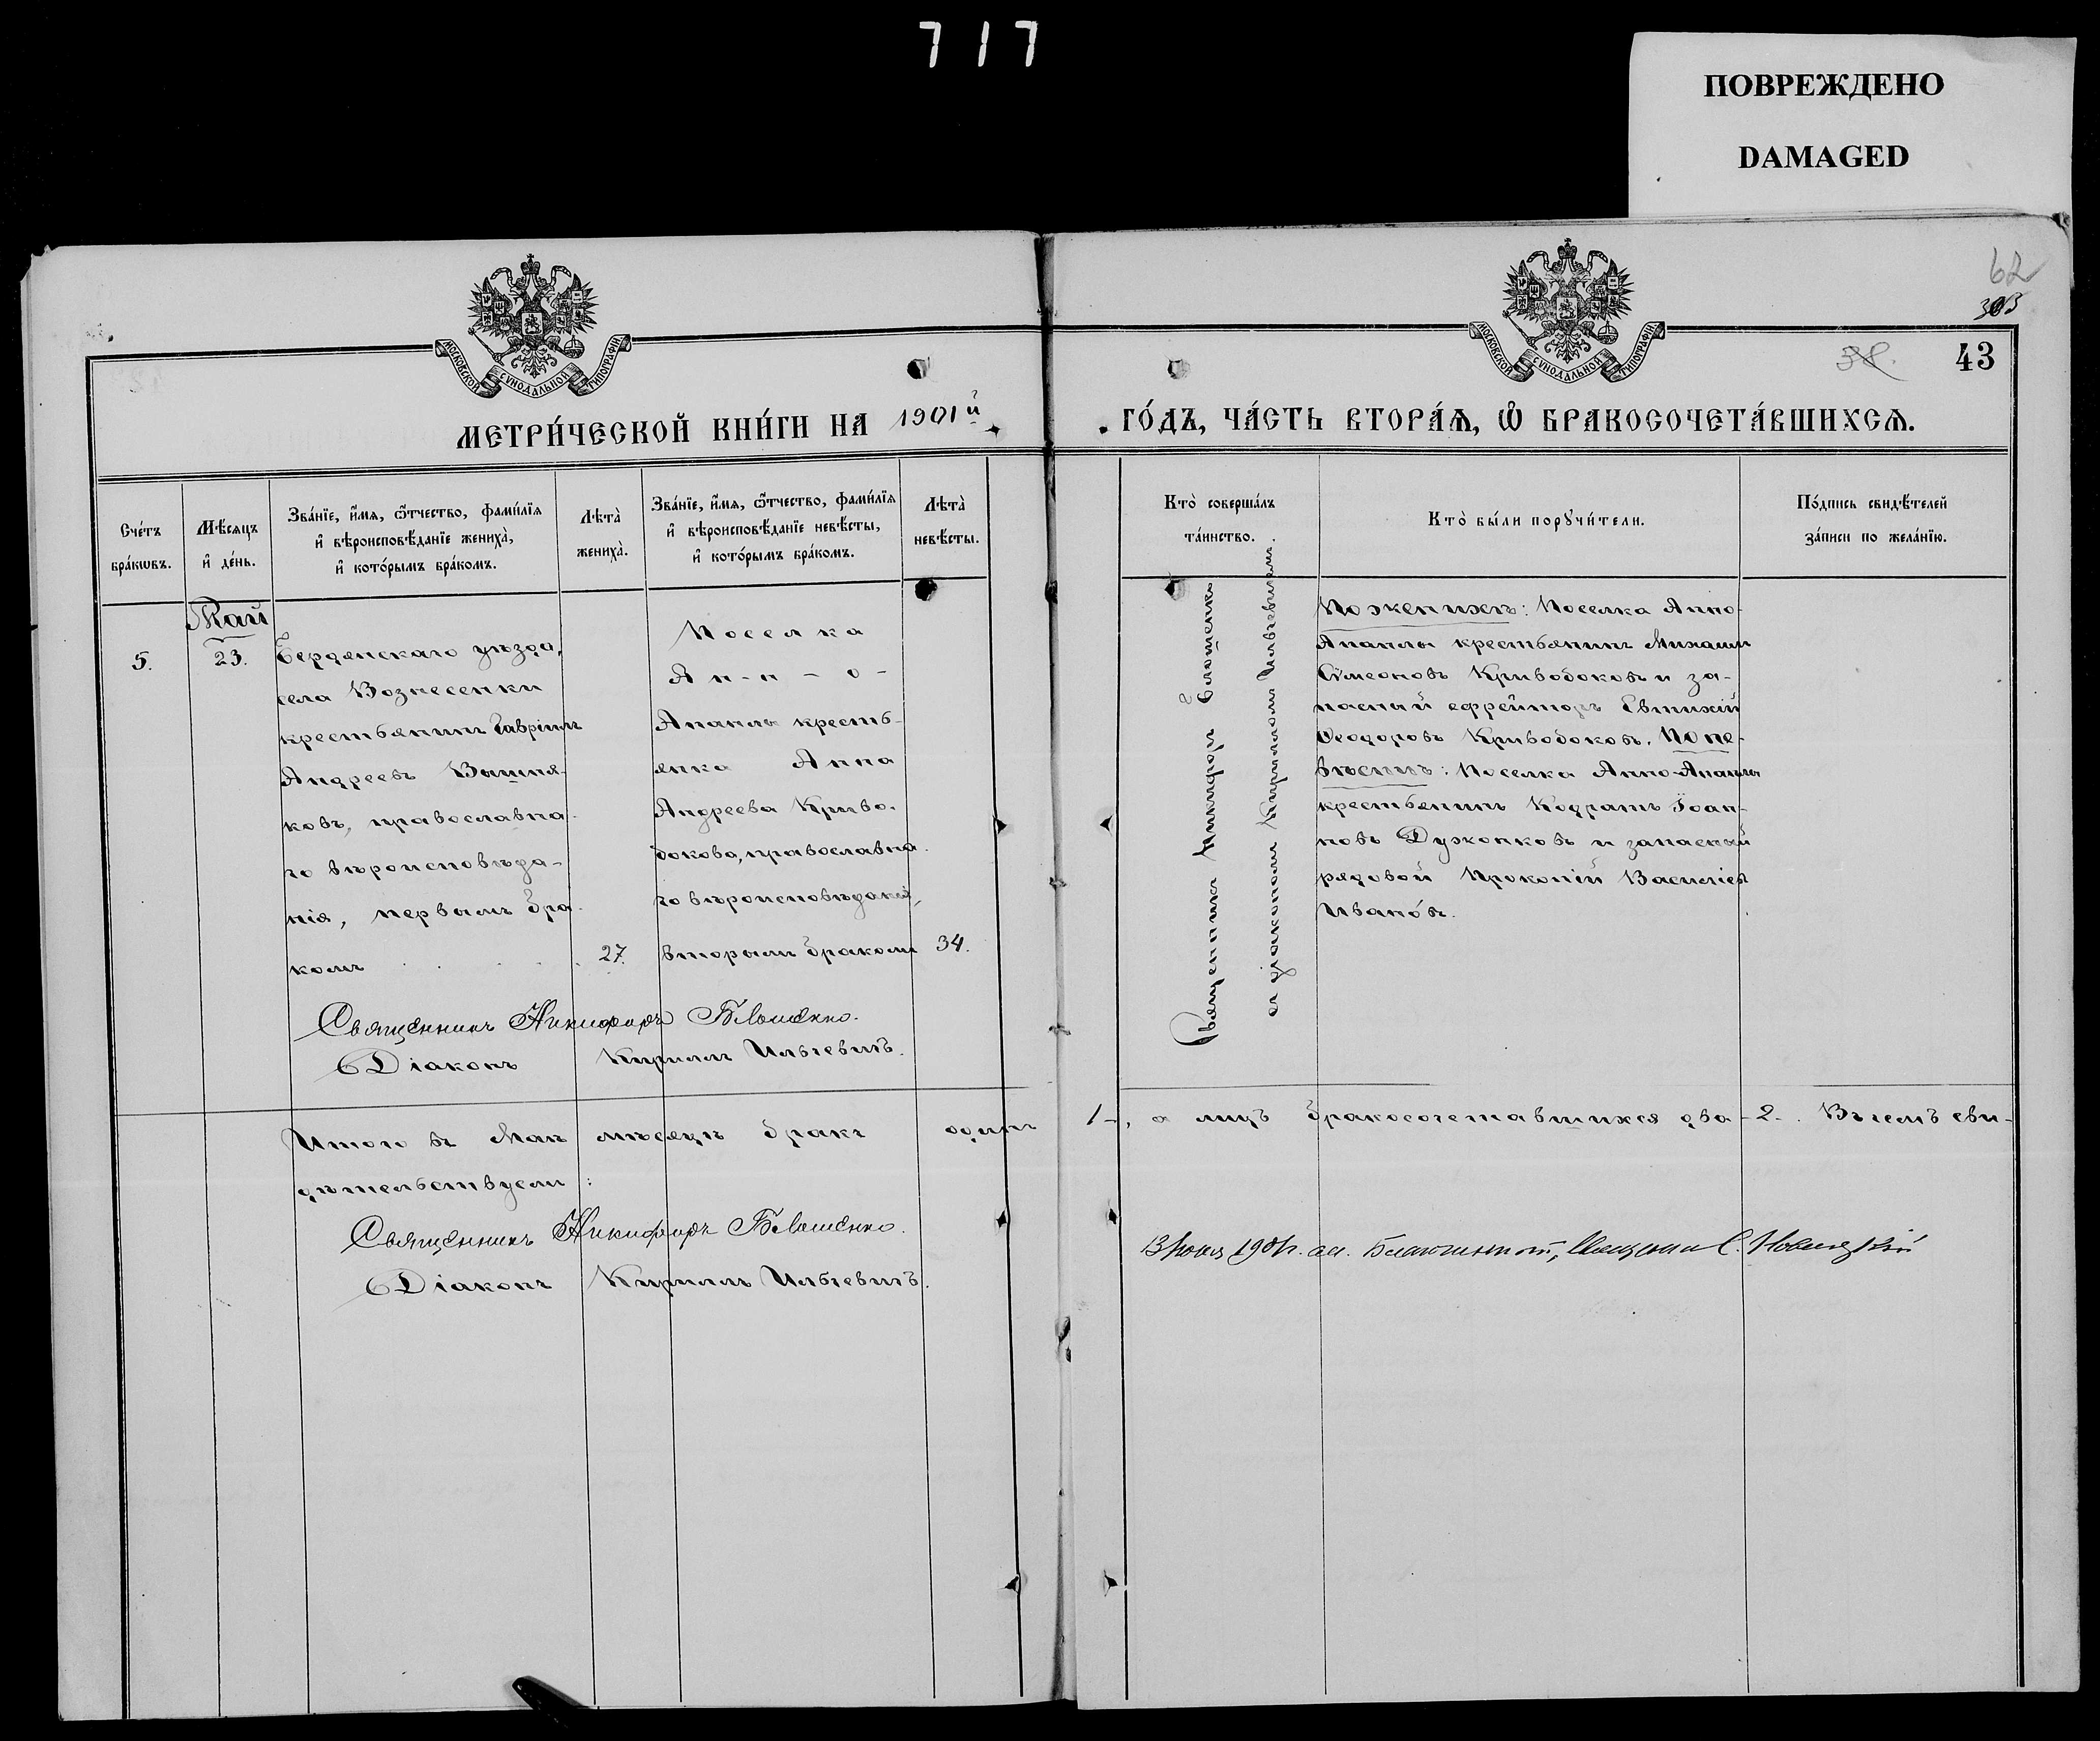 717
ПОВРЕЖДЕНО
DAMAGED
62
303
38.
43
МОСКОВСКОЙ СѴНОДАЛЬНОЙ ТИПОГРАФІИ
МОСКОВСКОЙ СѴНОДАЛЬНОЙ ТИПОГРАФІИ
МЕТРИ́ЧЕСКОЙ КНИ́ГИ НА 1901й
ГО́ДЪ, ЧА́СТЬ ВТОРА́Ѧ, Ѽ БРАКОСОЧЕТА́ВШИХСѦ.
Сче́тъ
бра́кѡвъ.
Мѣ́сяцъ
и҆ де́нь.
Зва́нїе, и҆́мя, ѻ҆́тчество, фами́лїя
и҆ вѣроисповѣ́данїе жениха̀,
и҆ кото́рымъ бра́комъ.
Лѣта̀
жениха̀.
Зва́нїе, и҆́мя, ѻ҆́тчество, фами́лїя
и҆ вѣроисповѣ́данїе невѣ́сты,
и҆ кото́рымъ бра́комъ.
Лѣта̀
невѣ́сты.
Кто̀ соверша́лъ
та́инство.
Кто̀ бы́ли порꙋчи́тели.
По́дпись свидѣ́телей
за́писи по жела́нїю.
5.
Май
23.
Бердянскаго уѣзда,
села Вознесенки
крестьянинъ Гавріилъ
Андреевъ Вишня-
ковъ, православна-
го вѣроисповѣда-
нія, первымъ бра-
комъ
27.
Поселка
Ан-н-о-
Апанлы кресть-
янка Анна
Андреева Криво-
бокова, православна-
го вѣроисповѣданія,
вторымъ бракомъ
34.
Священникъ Никифоръ Бѣлошенко
съ діакономъ Кирилломъ Ильчевичемъ.
По женихѣ: Поселка Анно-
Апанлы крестьянинъ Михаилъ
Сѵмеоновъ Кривобоковъ и за-
пасный ефрейторъ Евтихій
Ѳеодоровъ Кривобоковъ. По не-
вѣстѣ: Поселка Анно-Апанлы
крестьянинъ Кодратъ Іоан-
новъ Духонковъ и запасный
рядовой Прокопій Василіевъ
Ивановъ.
Священникъ Никифоръ Бѣлошенко.
Діаконъ Кириллъ Ильчевичъ.
Итого въ Маѣ мѣсяцѣ бракъ одинъ 1-, а лицъ бракосочетавшихся два -2-. Въ чемъ сви-
дѣтельствуемъ:
Священникъ Никифоръ Бѣлошенко.
Діаконъ Кириллъ Ильчевичъ.
13 Іюня 1901 г. Благочинный, Священникъ С. Новицкій